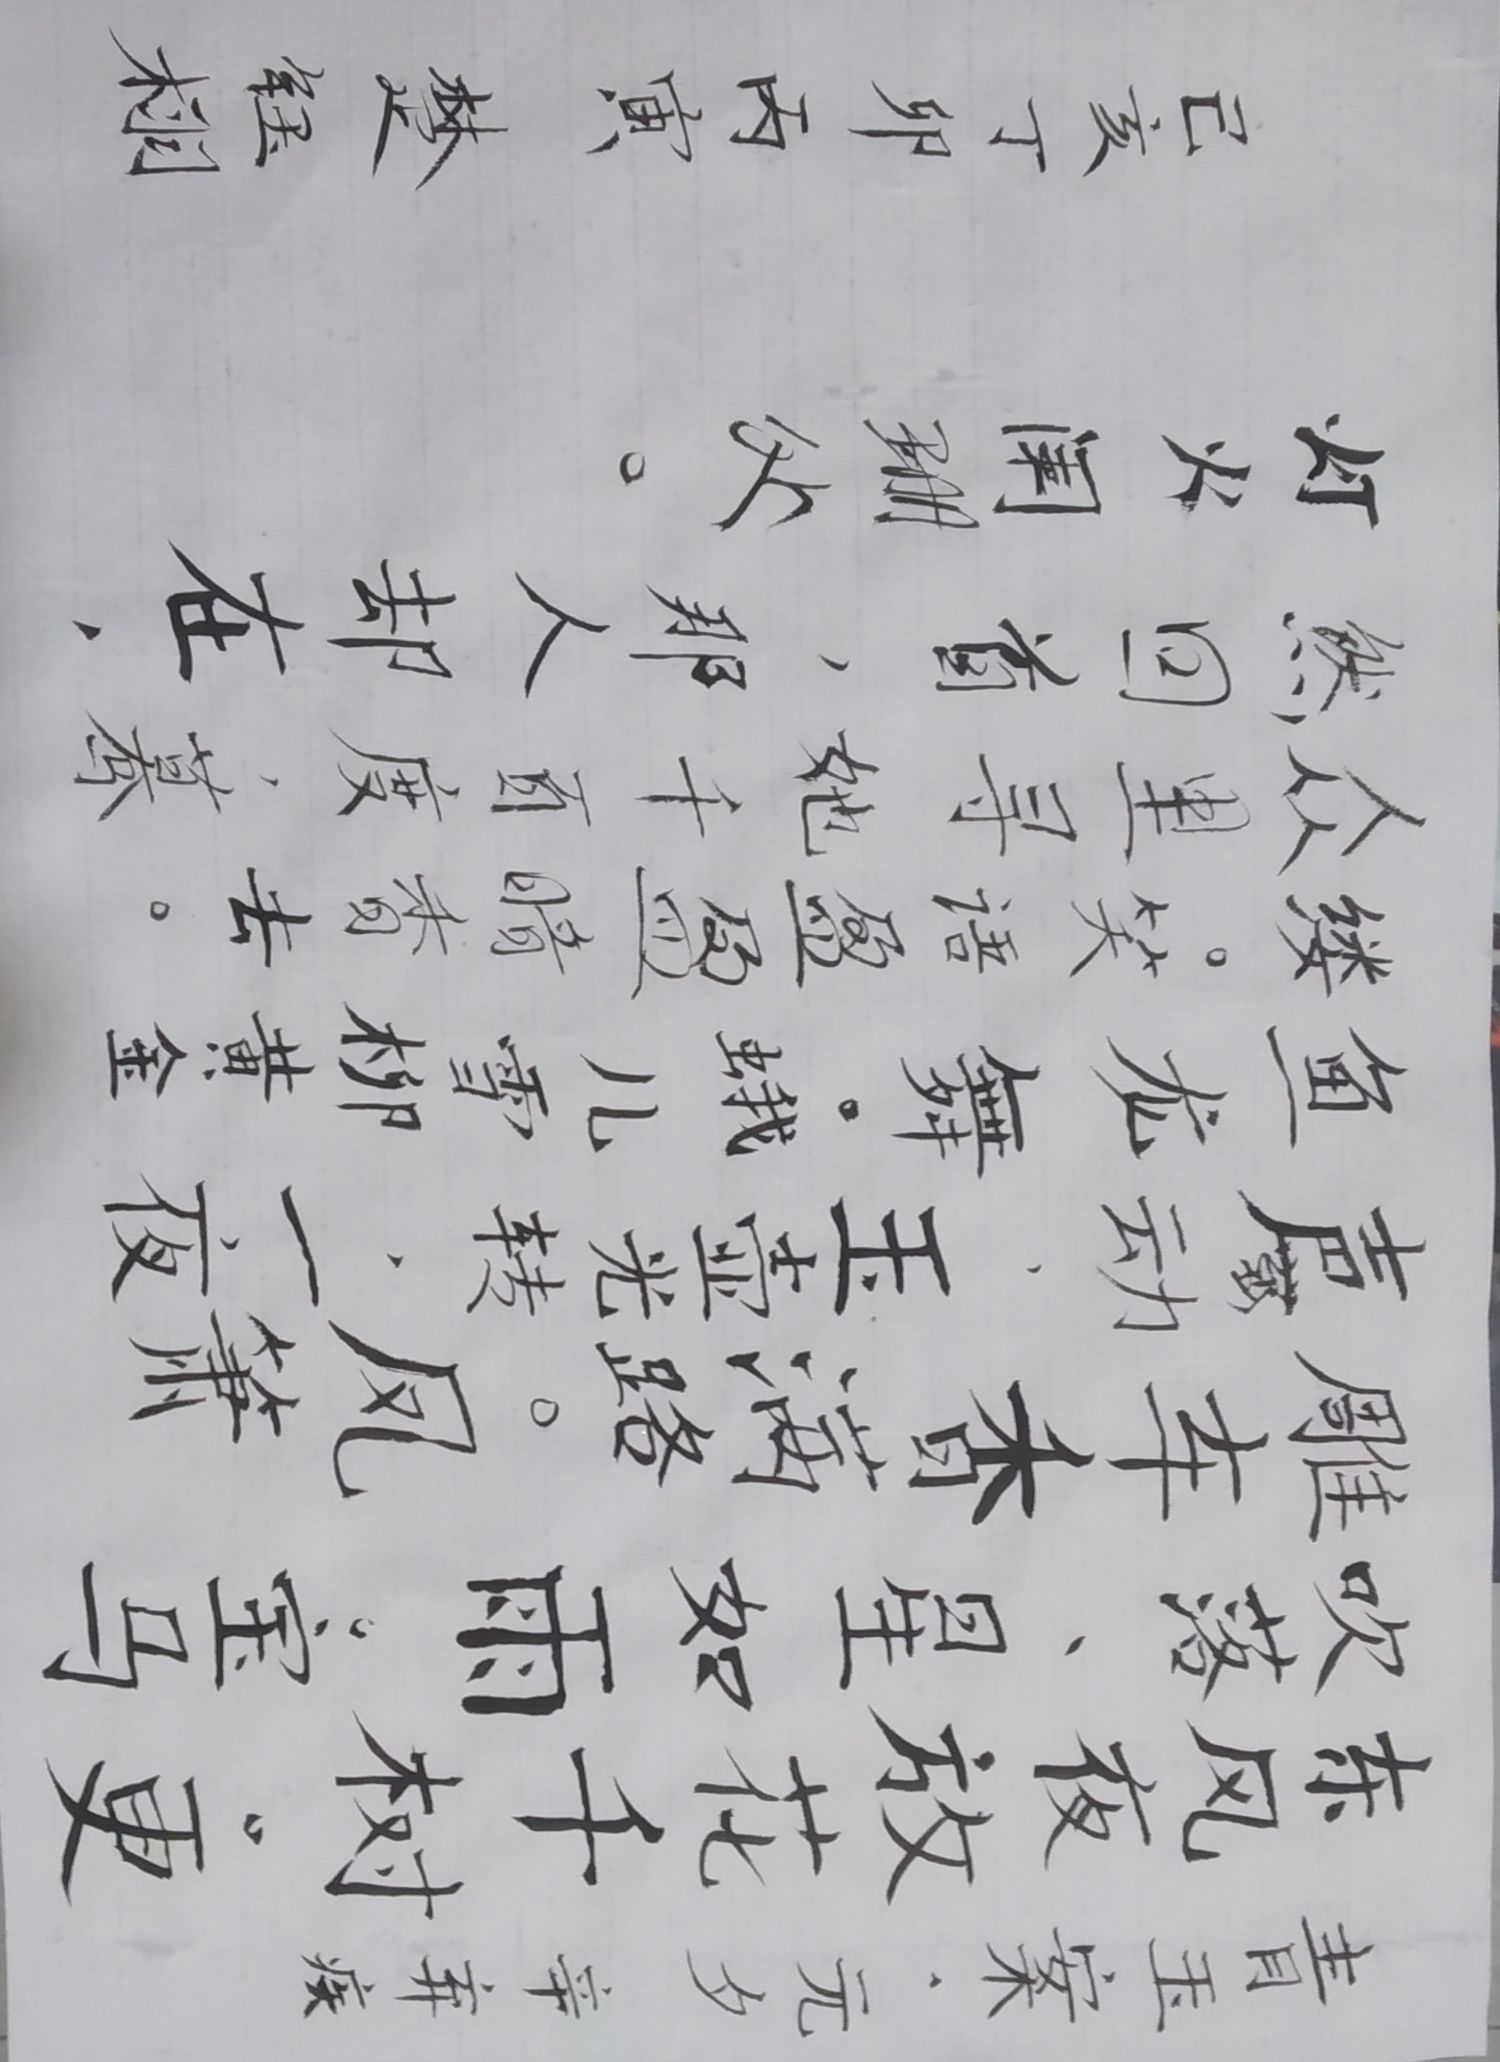 青玉案·元夕 辛弃疾
东风夜放花千树。更
吹落、星如雨。宝马
雕车香满路。风箫
声动，玉壶光转，一夜
鱼龙舞。蛾儿雪柳黄金
缕。笑语盈盈暗香去。
众里寻她千百度，蓦
然回首，那人却在，
灯火闌珊处。
己亥丁卯丙寅 楚